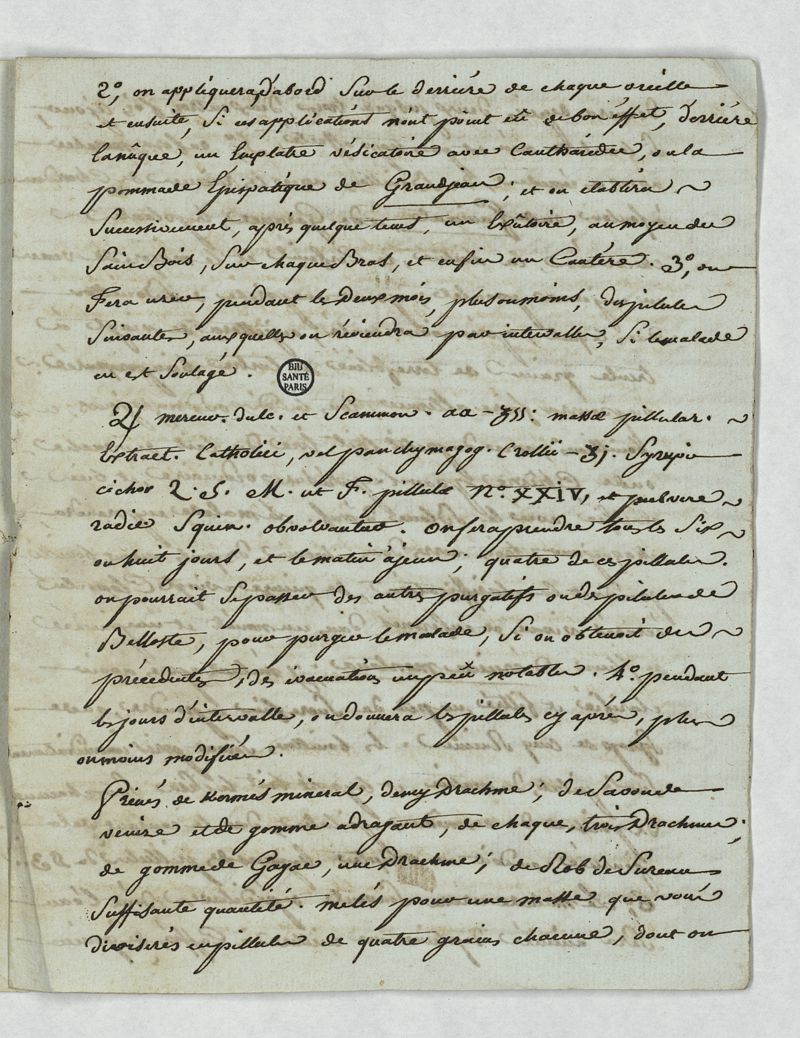 2°, on appliquera, d'abord sur le derriére de chaque oreille
et ensuite, si ces applications n'ont point eu de bon éffet, derriére
la nuque, un Emplatre vésicatoire avec Cantharides, ou la
pommade Épispatique de Grandjean; et on etablira
Successivement, aprés quelque tems, un Exutoire, au moyen du
Sain Bois, sur chaque Bras, et enfin un Cautére. 3°, on
fera user, pendant les deux mois, plus ou moins, des pilules
Suivantes, auxquelles on réviendra par intervalle, si le malade
en est soulagé.
BIU SANTÉ PARIS
♃ mercur. dulc. et Scammon. aa - ʒss: massæ pillular.
Extract. Catholici, vel panchymagog. Crollii - ʒj. Syrupi
cichor Q. S. M. ut F. pillulæ N° XXIV, et pulvere
radic Squin. obvolvantur. on fera prendre tous les six
ou huit jours, et le matin à jeun; quatre de ces pillules.
on pourrait se passer des autres purgatifs ou des pilules de
Belloste, pour purger le malade, si on obtenoit des
précédentes, des évacuations un peu notables. 4° pendant
les jours d'intervalle, on donnera les pillules cy aprés, plus
ou moins modifiées.
Prenés de Kermés mineral, demy Drachme; de Savon de
venise et de gomme adragant, de chaque, trois Drachmes;
de gomme de Gayac, une Drachme; de Rob de Sureau
Suffisante quantité. mêlés pour une masse que vous
diviserés en pillules de quatre grains chacune, dont on